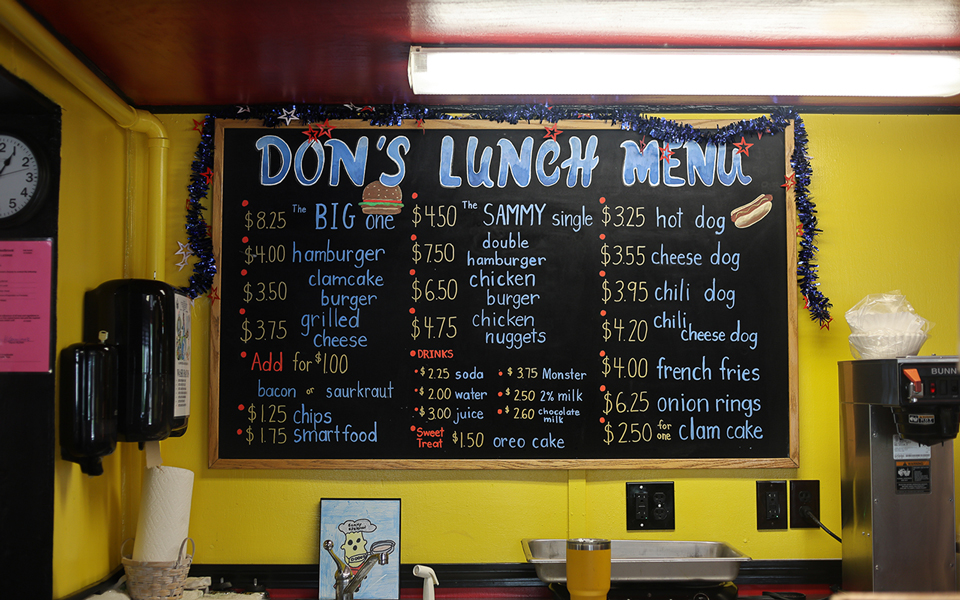 DON'S LUNCH MENU
$8.25 The BIG one
$4.00 hamburger
$3.50 clamcake
burger
$3.75 grilled
cheese
Add for $1.00
bacon or saurkraut
$1.25 chips
$1.75 smartfood
$4.50 The SAMMY single
$7.50 double
hamburger
$6.50 chicken
burger
$4.75 chicken
nuggets
DRINKS
$2.25 soda
$2.00 water
$3.00 juice
$3.75 Monster
$2.50 2% milk
$2.60 chocolate
milk
Sweet
Treat $1.50 oreo cake
$3.25 hot dog
$3.55 cheese dog
$3.95 chili dog
$4.20 chili
cheese dog
$4.00 french fries
$6.25 onion rings
$2.50 for
one clam cake
BUNN
2
3
4
5